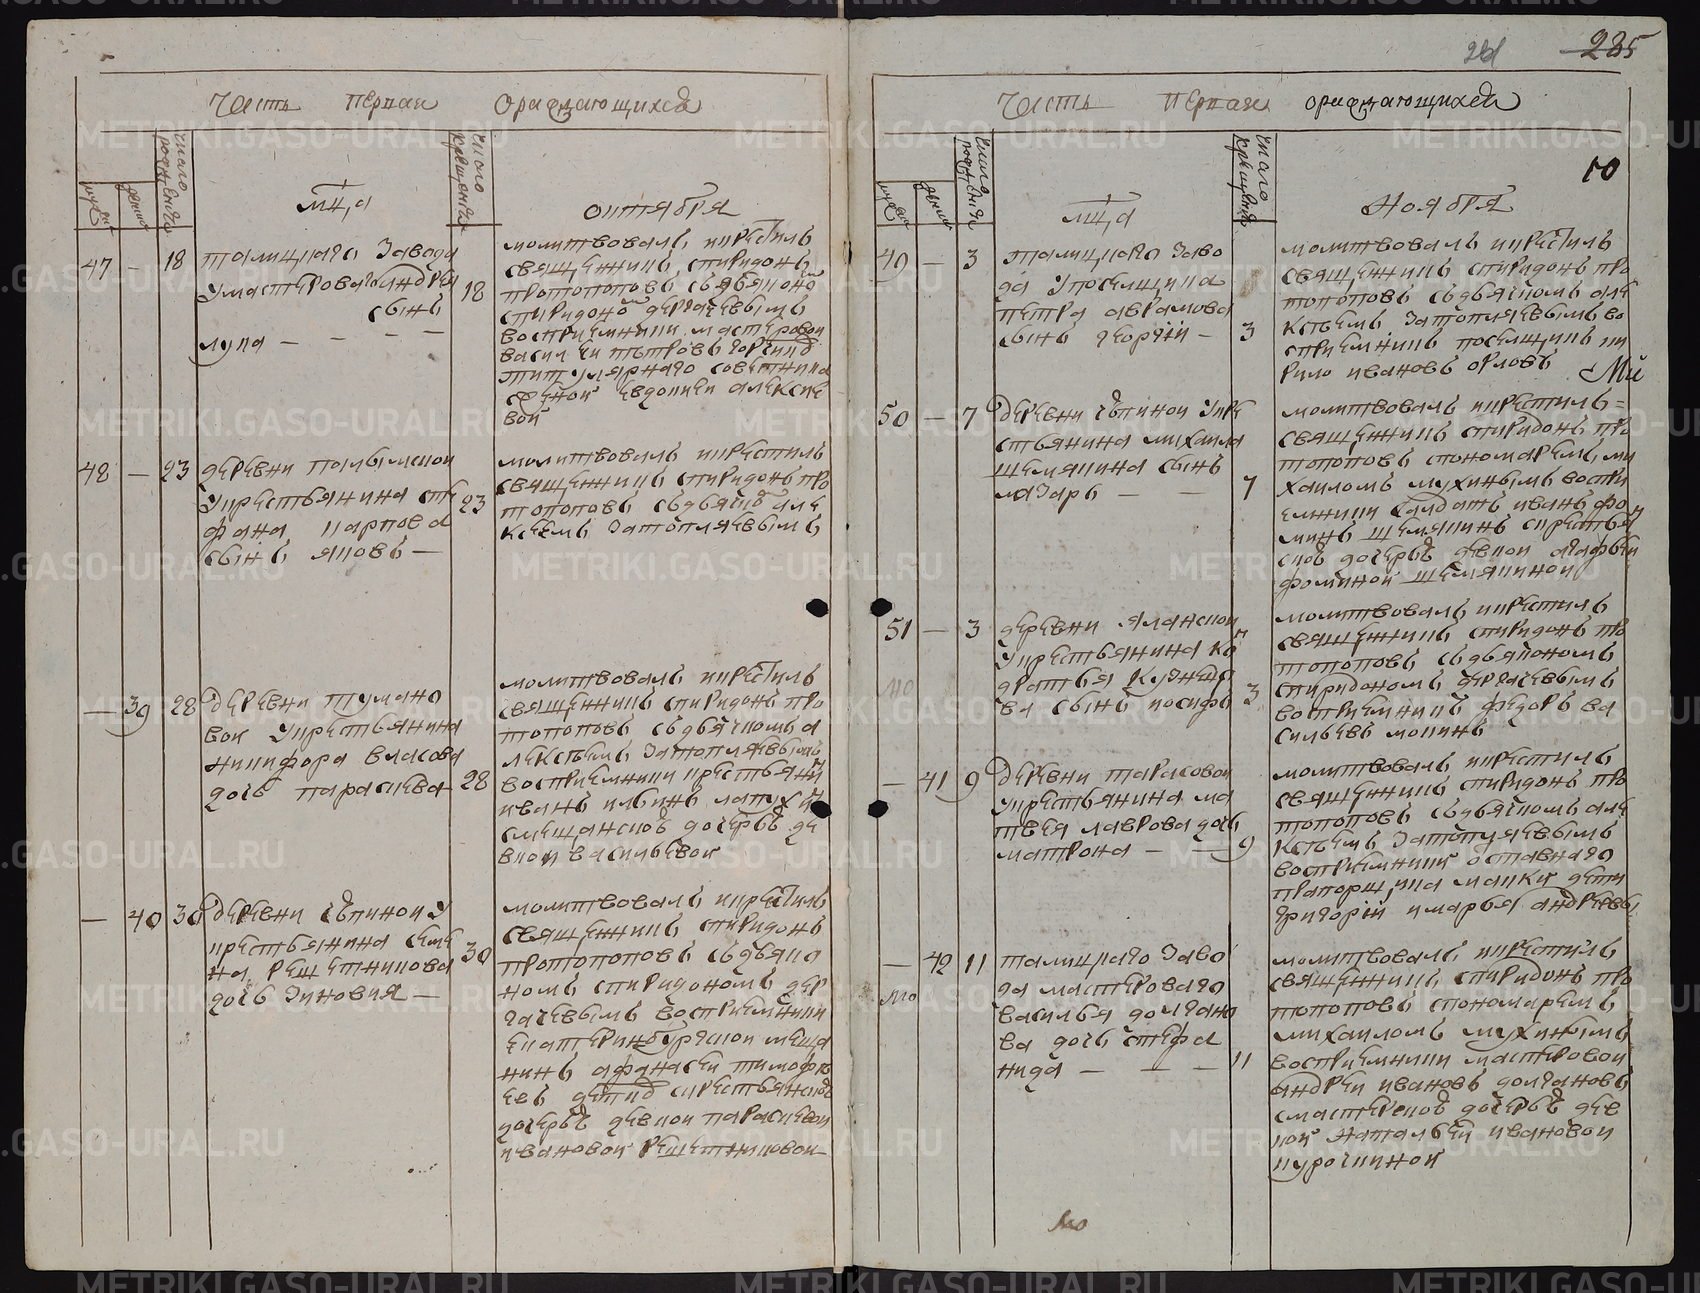 281 285
Часть первая о рождающихся
число рождения
число крещения
муж
жен
мца
октября
47 — 18
талицкаго завода
у мастероваго андрея
сынъ
лука — — —
18
молитвовалъ и крестилъ
священникъ спиридонъ
протопоповъ съ дьякономъ
спиридономъ дергачевымъ
восприемники мастеровой
василеи петровъ
титулярнаго советника
женой евдокией алексее
вой
48 — 23
деревни палымской
у крестьянина сте
фана карпова
сынъ яковъ —
23
молитвовалъ и крестилъ
священникъ спиридонъ про
топоповъ съ дьячкомъ але
ксеемъ затопляевымъ
— 39 28
деревни тумано
вой у крестьянина
никифора власова
дочь параскева
28
молитвовалъ и крестилъ
священникъ спиридонъ про
топоповъ съ дьячкомъ а
лексеемъ затопляевымъ
восприемники крестьянинъ
иванъ ильинъ
смещанской дочерью де
вкой васильевой
— 40 30
деревни чепиной у
крестьянина семе
на решетникова
дочь зиновия —
30
молитвовалъ и крестилъ
священникъ спиридонъ
протопоповъ съ дьяко
номъ спиридономъ дер
гачевымъ восприемники
екатеринбургской меща
нинъ афанасеи тимофе
евъ с крестьянской
дочерью девкой параскевой
ивановой решетниковой
Часть первая о рождающихся
10
число рождения
число крещения
муж
жен
мца
ноября
49 — 3
талицкаго заво
да у поселщика
петра аврамова
сынъ георгiй —
3
молитвовалъ и крестилъ
священникъ спиридонъ про
топоповъ съ дьячкомъ але
ксеемъ затопляевымъ во
сприемникъ поселщикъ ки
рило ивановъ орловъ
50 — 7
деревни чепиной у кре
стьянина михаила
шемякина сынъ
лазарь — —
7
молитвовалъ и крестилъ
священникъ спиридонъ про
топоповъ с пономаремъ ми
хаиломъ мухинымъ воспри
емники салдатъ иванъ фо
минъ шемякинъ с крестья
ской дочерью девкой агафьей
фоминой шемякиной
51 — 3
деревни яланской
у крестьянина ко
дратья кузнецо
ва сынъ иосифъ
3
молитвовалъ и крестилъ
священникъ спиридонъ про
топоповъ съ дьякономъ
спиридономъ дергачевымъ
восприемникъ федоръ ва
сильевъ мокинъ
— 41 9
деревни тарасовой
у крестьянина ма
твея лаврова дочь
матрона — —
9
молитвовалъ и крестилъ
священникъ спиридонъ про
топоповъ съ дьячкомъ але
ксеемъ затопляевымъ
восприемники отставнаго
прапорщика дети
григорiй и марья андреевы
— 42 11
талицкаго заво
да мастероваго
василья долгано
ва дочь стефа
нида — — —
11
молитвовалъ и крестилъ
священникъ спиридонъ про
топоповъ с пономаремъ
михаиломъ мухинымъ
восприемники мастеровой
андреи ивановъ долгановъ
с мастерской дочерью дев
кой натальей ивановой
курочкиной